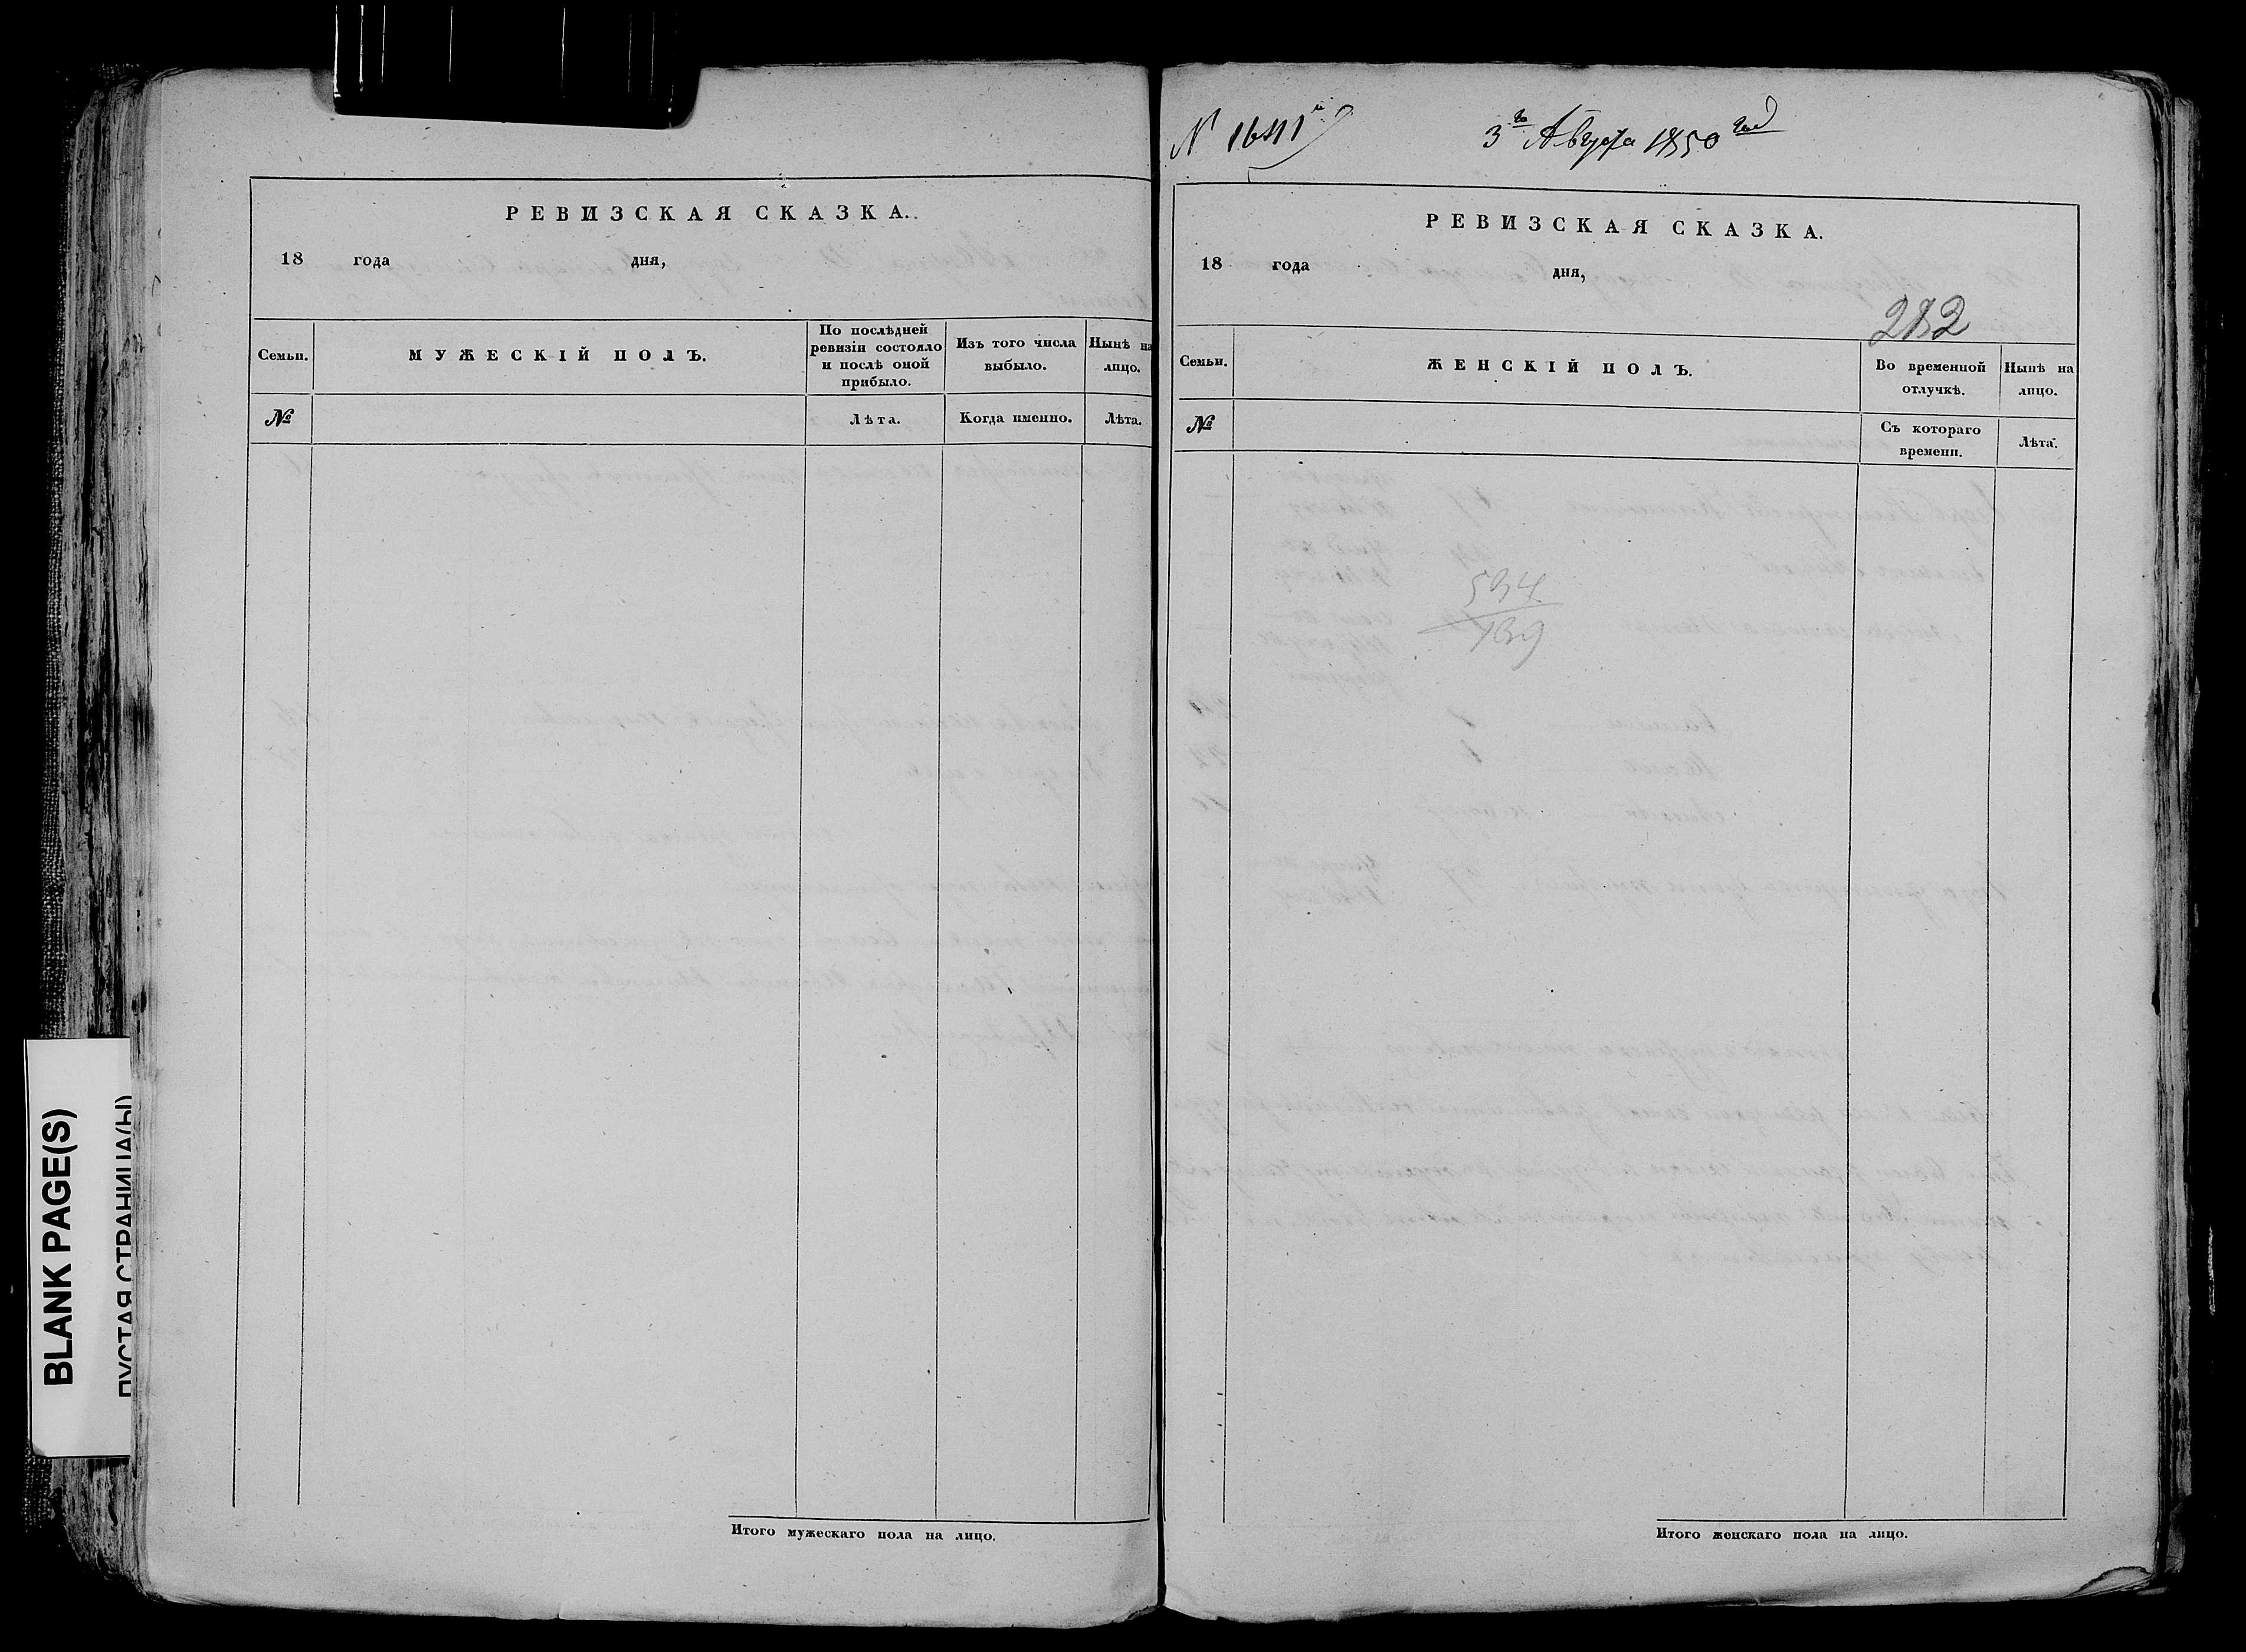 РЕВИЗСКАЯ СКАЗКА.
18 года дня,
Семьи.
МУЖЕСКІЙ ПОЛЪ.
По послѣдней
ревизіи состояло
и послѣ оной
прибыло.
Изъ того числа
выбыло.
Нынѣ на
лицо.
№
Лѣта.
Когда именно.
Лѣта.
Итого мужескаго пола на лицо.
BLANK PAGE(S)
ПУСТАЯ СТРАНИЦА(Ы)
3го Августа 1850 год
РЕВИЗСКАЯ СКАЗКА.
18 года дня,
282
Семьи.
ЖЕНСКІЙ ПОЛЪ.
Во временной
отлучкѣ.
Нынѣ на
лицо.
№
Съ котораго
времени.
Лѣта.
Итого женскаго пола на лицо.